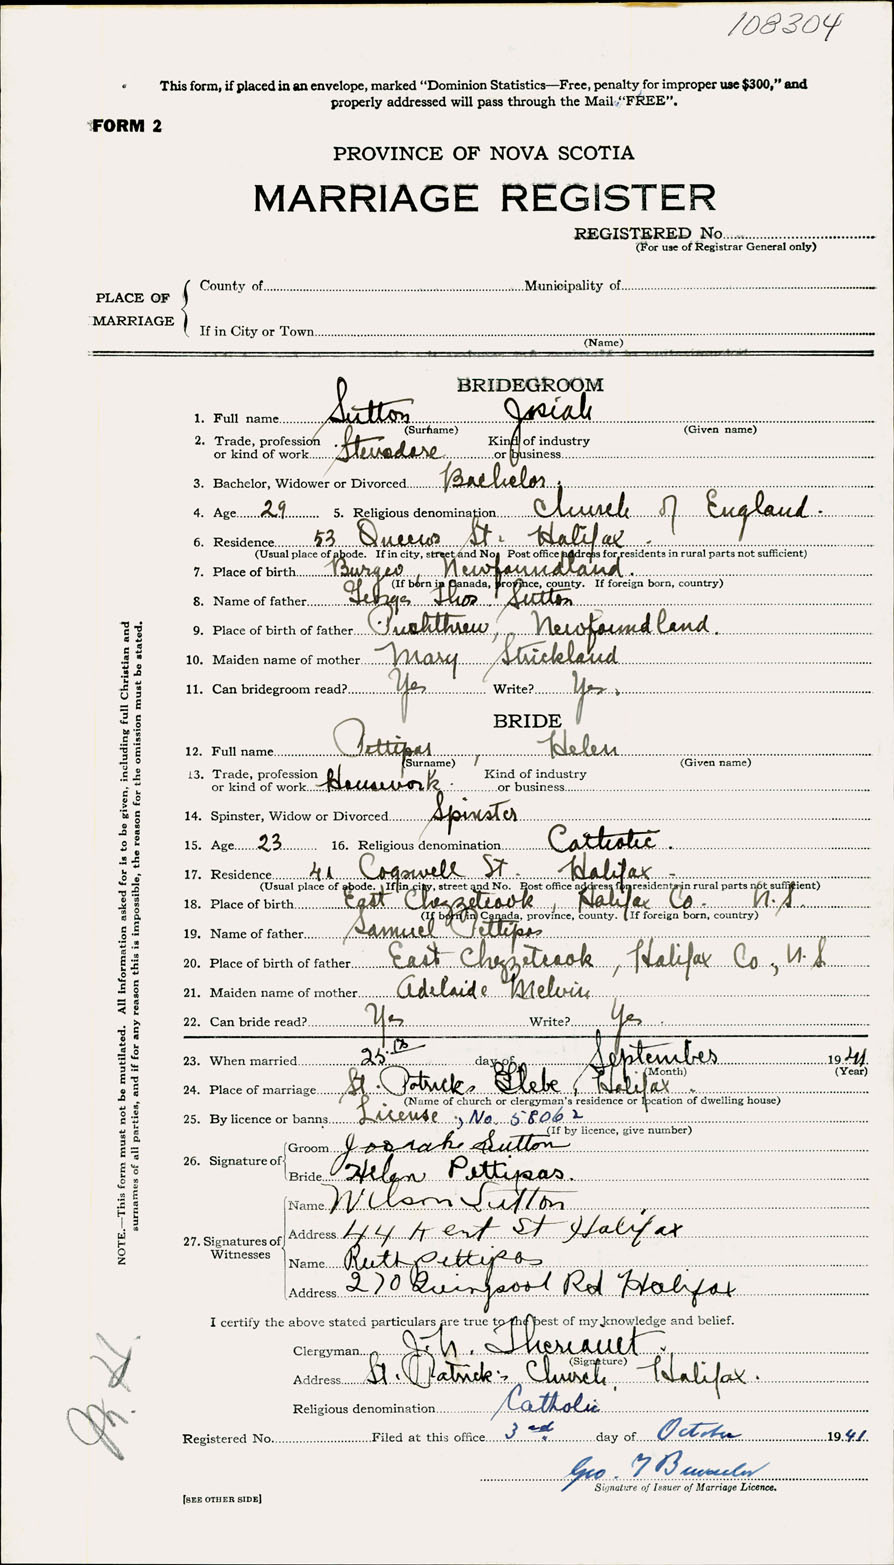 108304
This form, if placed in an envelope, marked “Dominion Statistics—Free, penalty for improper use $300,” and
properly addressed will pass through the Mail “FREE”.
FORM 2
PROVINCE OF NOVA SCOTIA
MARRIAGE REGISTER
REGISTERED No.
(For use of Registrar General only)
PLACE OF MARRIAGE
County of Municipality of
If in City or Town
(Name)
BRIDEGROOM
1. Full name Sutton Josiah
(Surname) (Given name)
2. Trade, profession or kind of work Stevadore Kind of industry or business
3. Bachelor, Widower or Divorced Bachelor.
4. Age 29 5. Religious denomination Church of England.
6. Residence 53 Queens St. Halifax.
(Usual place of abode. If in city, street and No. Post office address for residents in rural parts not sufficient)
7. Place of birth Burgeo, Newfoundland.
(If born in Canada, province, county. If foreign born, country)
8. Name of father George Thos Sutton
9. Place of birth of father Newfoundland.
10. Maiden name of mother Mary Strickland
11. Can bridegroom read? Yes Write? Yes.
BRIDE
12. Full name Pettipas, Helen
(Surname) (Given name)
13. Trade, profession or kind of work Housework. Kind of industry or business
14. Spinster, Widow or Divorced Spinster
15. Age 23 16. Religious denomination Catholic.
17. Residence 41 Cogswell St. Halifax
(Usual place of abode. If in city, street and No. Post office address for residents in rural parts not sufficient)
18. Place of birth East Chezzetcook, Halifax Co. N.S.
(If born in Canada, province, county. If foreign born, country)
19. Name of father Samuel Pettipas
20. Place of birth of father East Chezzetcook, Halifax Co., N.S
21. Maiden name of mother Adelaide Melvin
22. Can bride read? Yes Write? Yes.
23. When married 25th day of September 1941
(Month) (Year)
24. Place of marriage St. Patricks Glebe, Halifax.
(Name of church or clergyman's residence or location of dwelling house)
25. By licence or banns License, No. 58062
(If by licence, give number)
26. Signature of
Groom Josiah Sutton
Bride Helen Pettipas.
27. Signatures of Witnesses
Name Wilson Sutton
Address 44 Kent St Halifax
Name Ruth Pettipas
Address 270 Quinpool Rd Halifax
I certify the above stated particulars are true to the best of my knowledge and belief.
Clergyman J. N. Theriault.
(Signature)
Address St. Patrick's Church, Halifax.
Religious denomination Catholic
Registered No. Filed at this office 3rd day of October 1941.
Geo. T
Signature of Issuer of Marriage Licence.
[SEE OTHER SIDE]
NOTE.—This form must not be mutilated. All information asked for is to be given, including full Christian and
surnames of all parties, and if for any reason this is impossible, the reason for the omission must be stated.